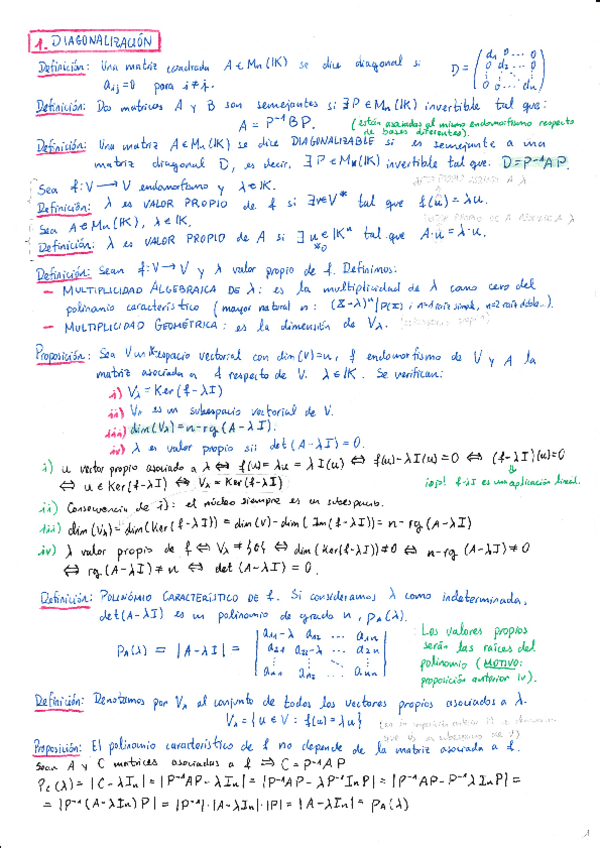 1. DIAGONALIZACIÓN
Definición: Una matriz cuadrada A ∈ Mn(IK) se dice diagonal si
aij = 0 para i ≠ j.
D = (d1 0 ... 0
0 d2 ... 0
0 0 ... dn)
Definición: Dos matrices A y B son semejantes si ∃P ∈ Mn(IK) invertible tal que:
A = P⁻¹BP. (están asociadas al mismo endomorfismo respecto
de bases diferentes).
Definición: Una matriz A ∈ Mn(IK) se dice DIAGONALIZABLE si es semejante a una
matriz diagonal D, es decir, ∃P ∈ Mn(IK) invertible tal que: D = P⁻¹AP.
Sea f: V → V endomorfismo y λ ∈ IK.
Definición: λ es VALOR PROPIO de f si ∃v∈V* tal que f(u) = λu.
Sea A ∈ Mn(IK), λ ∈ IK.
Definición: λ es VALOR PROPIO de A si ∃u∈IKⁿ tal que A·u = λ·u.
≠0
Definición: Sean f: V → V y λ valor propio de f. Definimos:
– MULTIPLICIDAD ALGEBRAICA DE λ: es la multiplicidad de λ como cero del
polinomio característico (mayor natural n: (X-λ)ⁿ | P(X); n=1 raíz simple, n=2 raíz doble...).
– MULTIPLICIDAD GEOMÉTRICA: es la dimensión de Vλ.
Proposición: Sea V un IK espacio vectorial con dim(V)=n, f endomorfismo de V y A la
matriz asociada a f respecto de V. λ ∈ IK. Se verifican:
i) Vλ = Ker(f-λI)
ii) Vλ es un subespacio vectorial de V.
iii) dim(Vλ) = n - rg(A-λI).
iv) λ es valor propio sii det(A-λI) = 0.
i) u vector propio asociado a λ ⇔ f(u) = λu = λI(u) ⇔ f(u) - λI(u) = 0 ⇔ (f-λI)(u) = 0
⇔ u ∈ Ker(f-λI) ⇔ Vλ = Ker(f-λI)
¡ojo! f-λI es una aplicación lineal.
ii) Consecuencia de i): el núcleo siempre es un subespacio.
iii) dim(Vλ) = dim(Ker(f-λI)) = dim(V) - dim(Im(f-λI)) = n - rg(A-λI)
iv) λ valor propio de f ⇔ Vλ ≠ {0} ⇔ dim(Ker(f-λI)) ≠ 0 ⇔ n - rg(A-λI) ≠ 0
⇔ rg(A-λI) ≠ n ⇔ det(A-λI) = 0.
Definición: POLINOMIO CARACTERÍSTICO DE f. Si consideramos λ como indeterminada,
det(A-λI) es un polinomio de grado n, pA(λ).
pA(λ) = |A-λI| = | a11-λ a12 ... a1n
a21 a22-λ ... a2n
an1 an2 ... ann |
Los valores propios
serán las raíces del
polinomio (MOTIVO:
proposición anterior iv).
Definición: Denotamos por Vλ al conjunto de todos los vectores propios asociados a λ.
Vλ = {u ∈ V : f(u) = λu}
Proposición: El polinomio característico de f no depende de la matriz asociada a f.
Sean A y C matrices asociadas a f ⇒ C = P⁻¹AP
PC(λ) = |C-λIn| = |P⁻¹AP-λIn| = |P⁻¹AP-λP⁻¹InP| = |P⁻¹AP-P⁻¹λInP| =
= |P⁻¹(A-λIn)P| = |P⁻¹|·|A-λIn|·|P| = |A-λIn| = pA(λ)
1